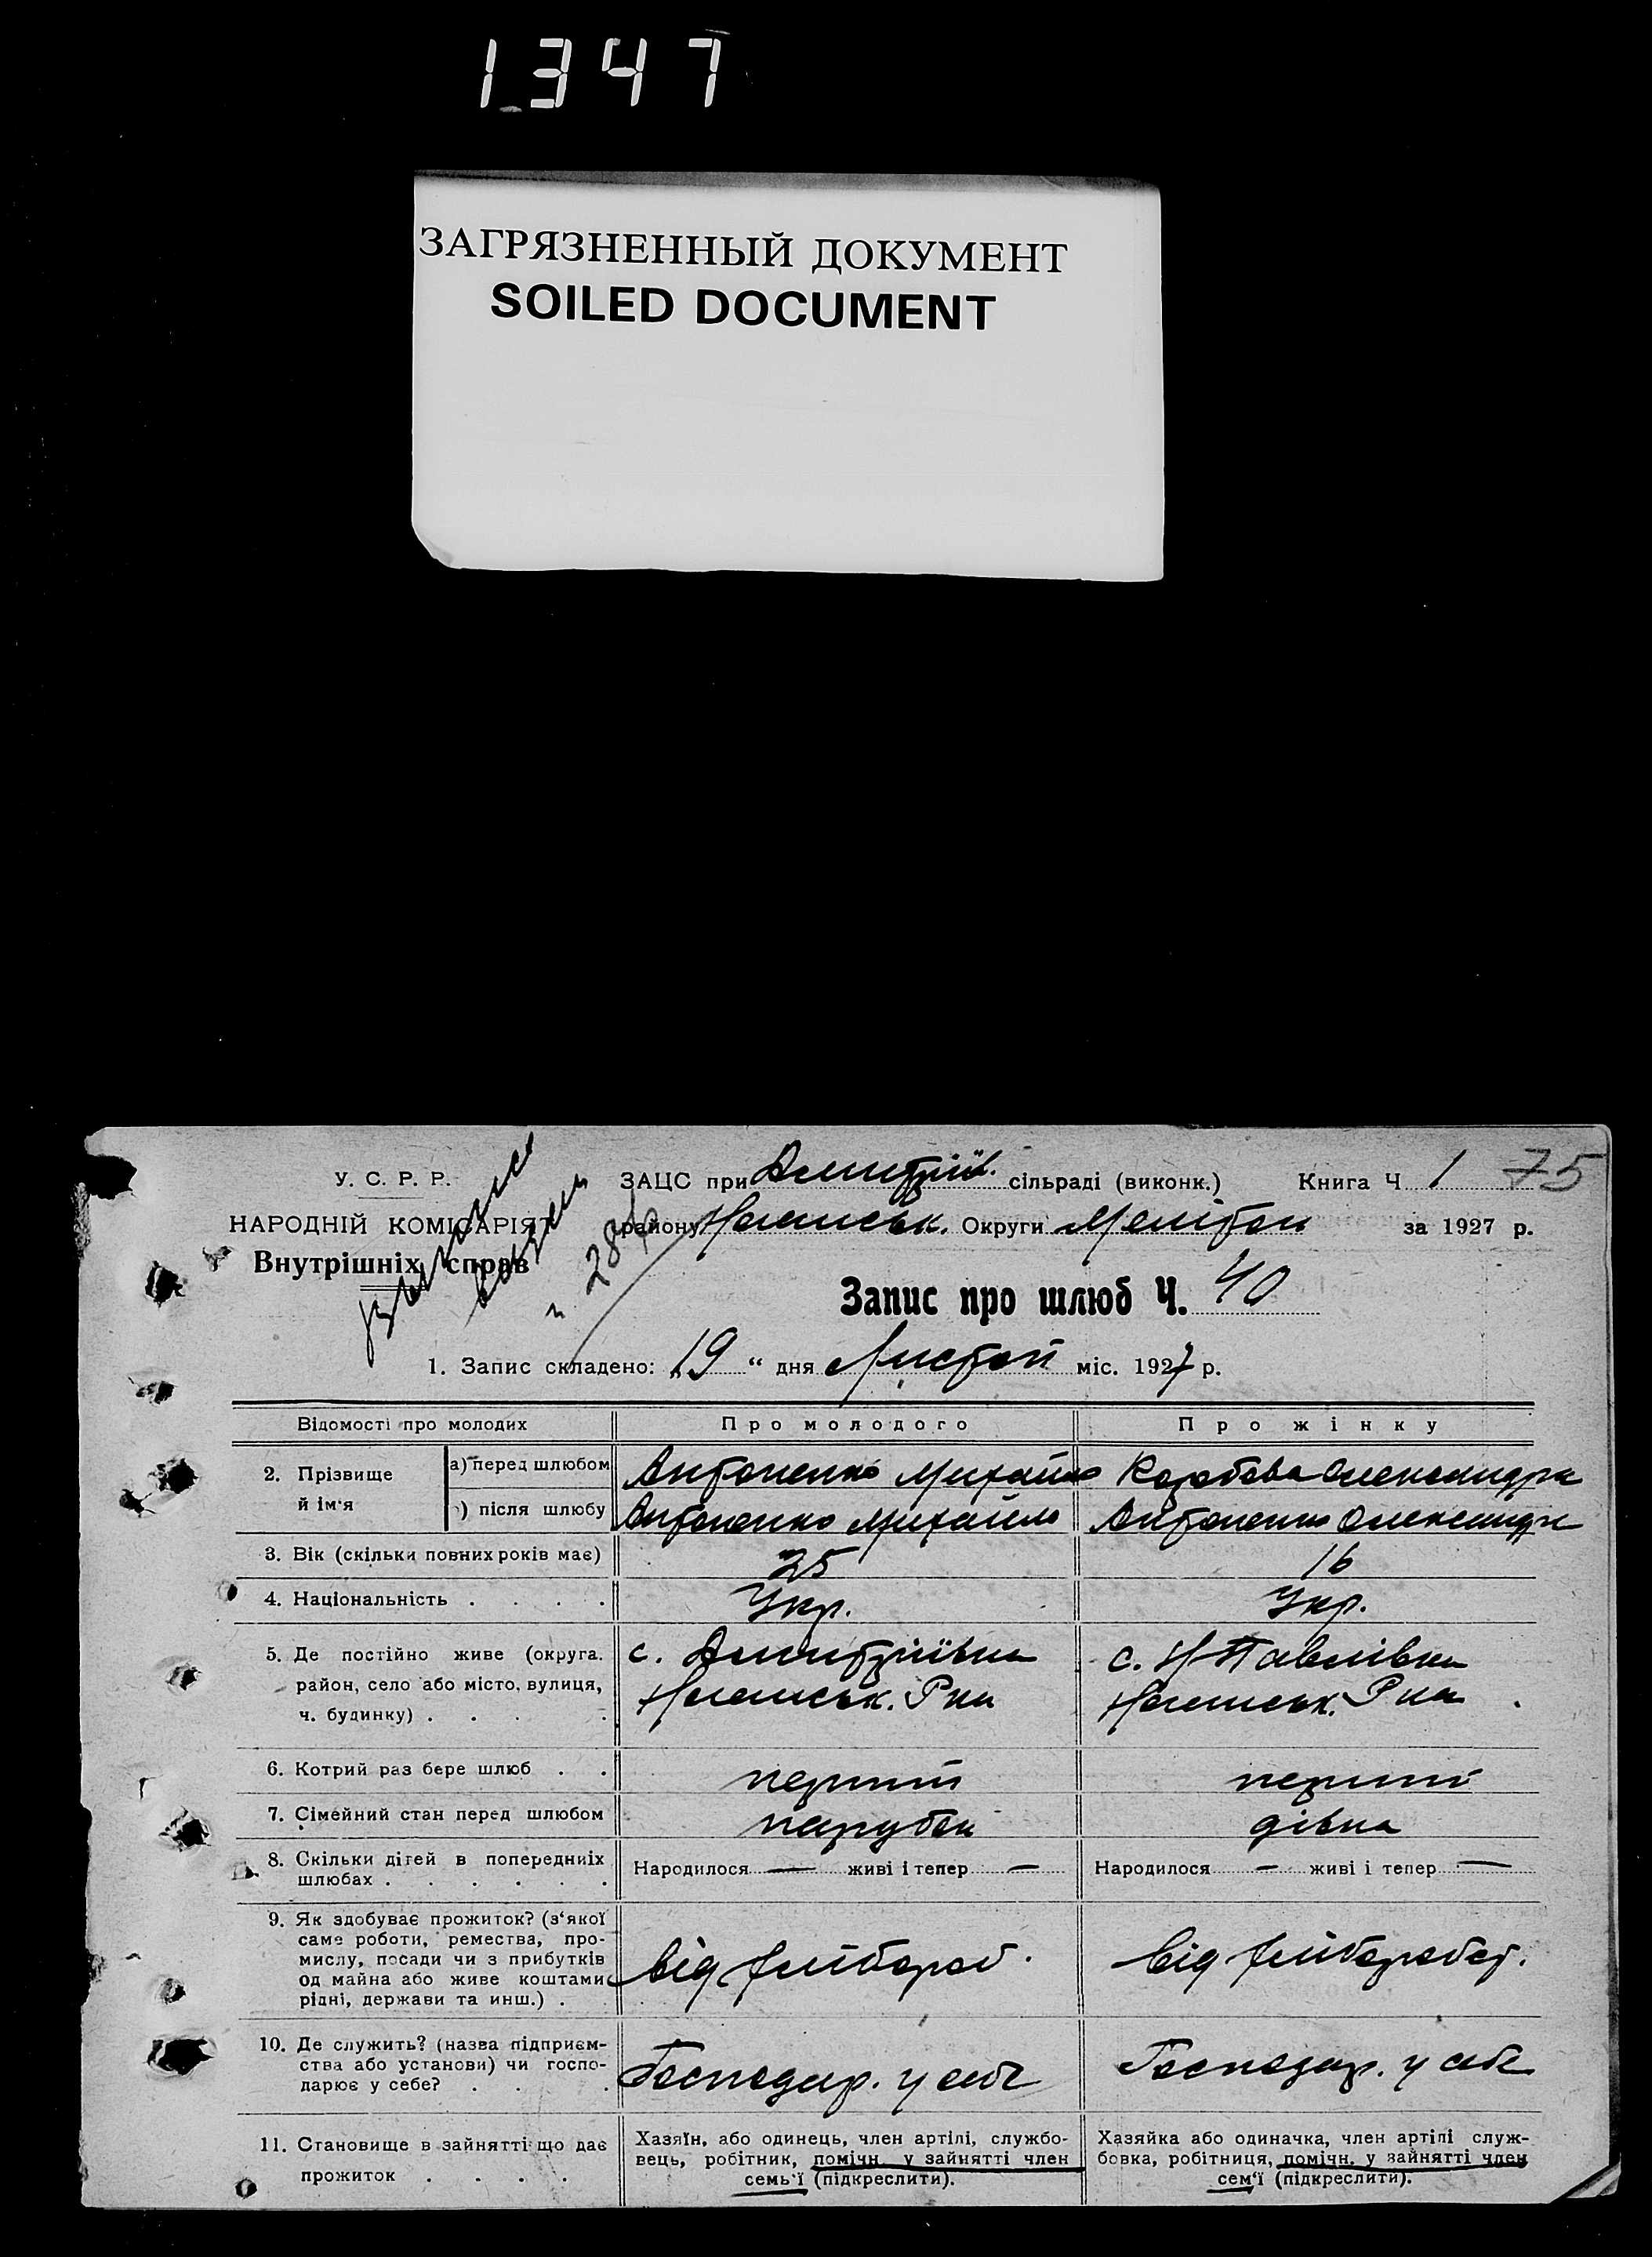 1347
ЗАГРЯЗНЕННЫЙ ДОКУМЕНТ
SOILED DOCUMENT
У. С. Р. Р.
ЗАЦС при Дмитріїв. сільраді (виконк.) Книга Ч. 1 75
НАРОДНІЙ КОМІСАРІЯТ
району Округи Мелітоп за 1927 р.
Внутрішніх справ
Запис про шлюб Ч. 40
1. Запис складено: „19“ дня Листоп міс. 1927 р.
Відомості про молодих Про молодого Про жінку
2. Прізвище й ім'я а) перед шлюбом Антоненко Михайло Олександра
б) після шлюбу Антоненко Михайло Антоненко Олександра
3. Вік (скільки повних років має) 25 16
4. Національність . . . . Укр. Укр.
5. Де постійно живе (округа. с. Дмитріївка с. Н Павлівка
район, село або місто, вулиця, Р на Р на
ч. будинку) . . .
6. Котрий раз бере шлюб . . перший перший
7. Сімейний стан перед шлюбом парубок дівка
8. Скільки дітей в попередніх шлюбах . . . . . . Народилося — живі і тепер — Народилося — живі і тепер —
9. Як здобуває прожиток? (з'якої
саме роботи, ремества, про-
мислу, посади чи з прибутків
од майна або живе коштами від хлібороб. від хлібороб.
рідні, держави та инш.) .
10. Де служить? (назва підприєм-
ства або установи) чи госпо-
дарює у себе? . . . Господар. у себе Господар. у себе
11. Становище в зайнятті що дає прожиток . . . .
Хазяїн, або одинець, член артілі, службо-
вець, робітник, помічн. у зайнятті член
семь'ї (підкреслити).
Хазяйка або одиначка, член артілі служ-
бовка, робітниця, помічн. у зайнятті член
сем'ї (підкреслити).